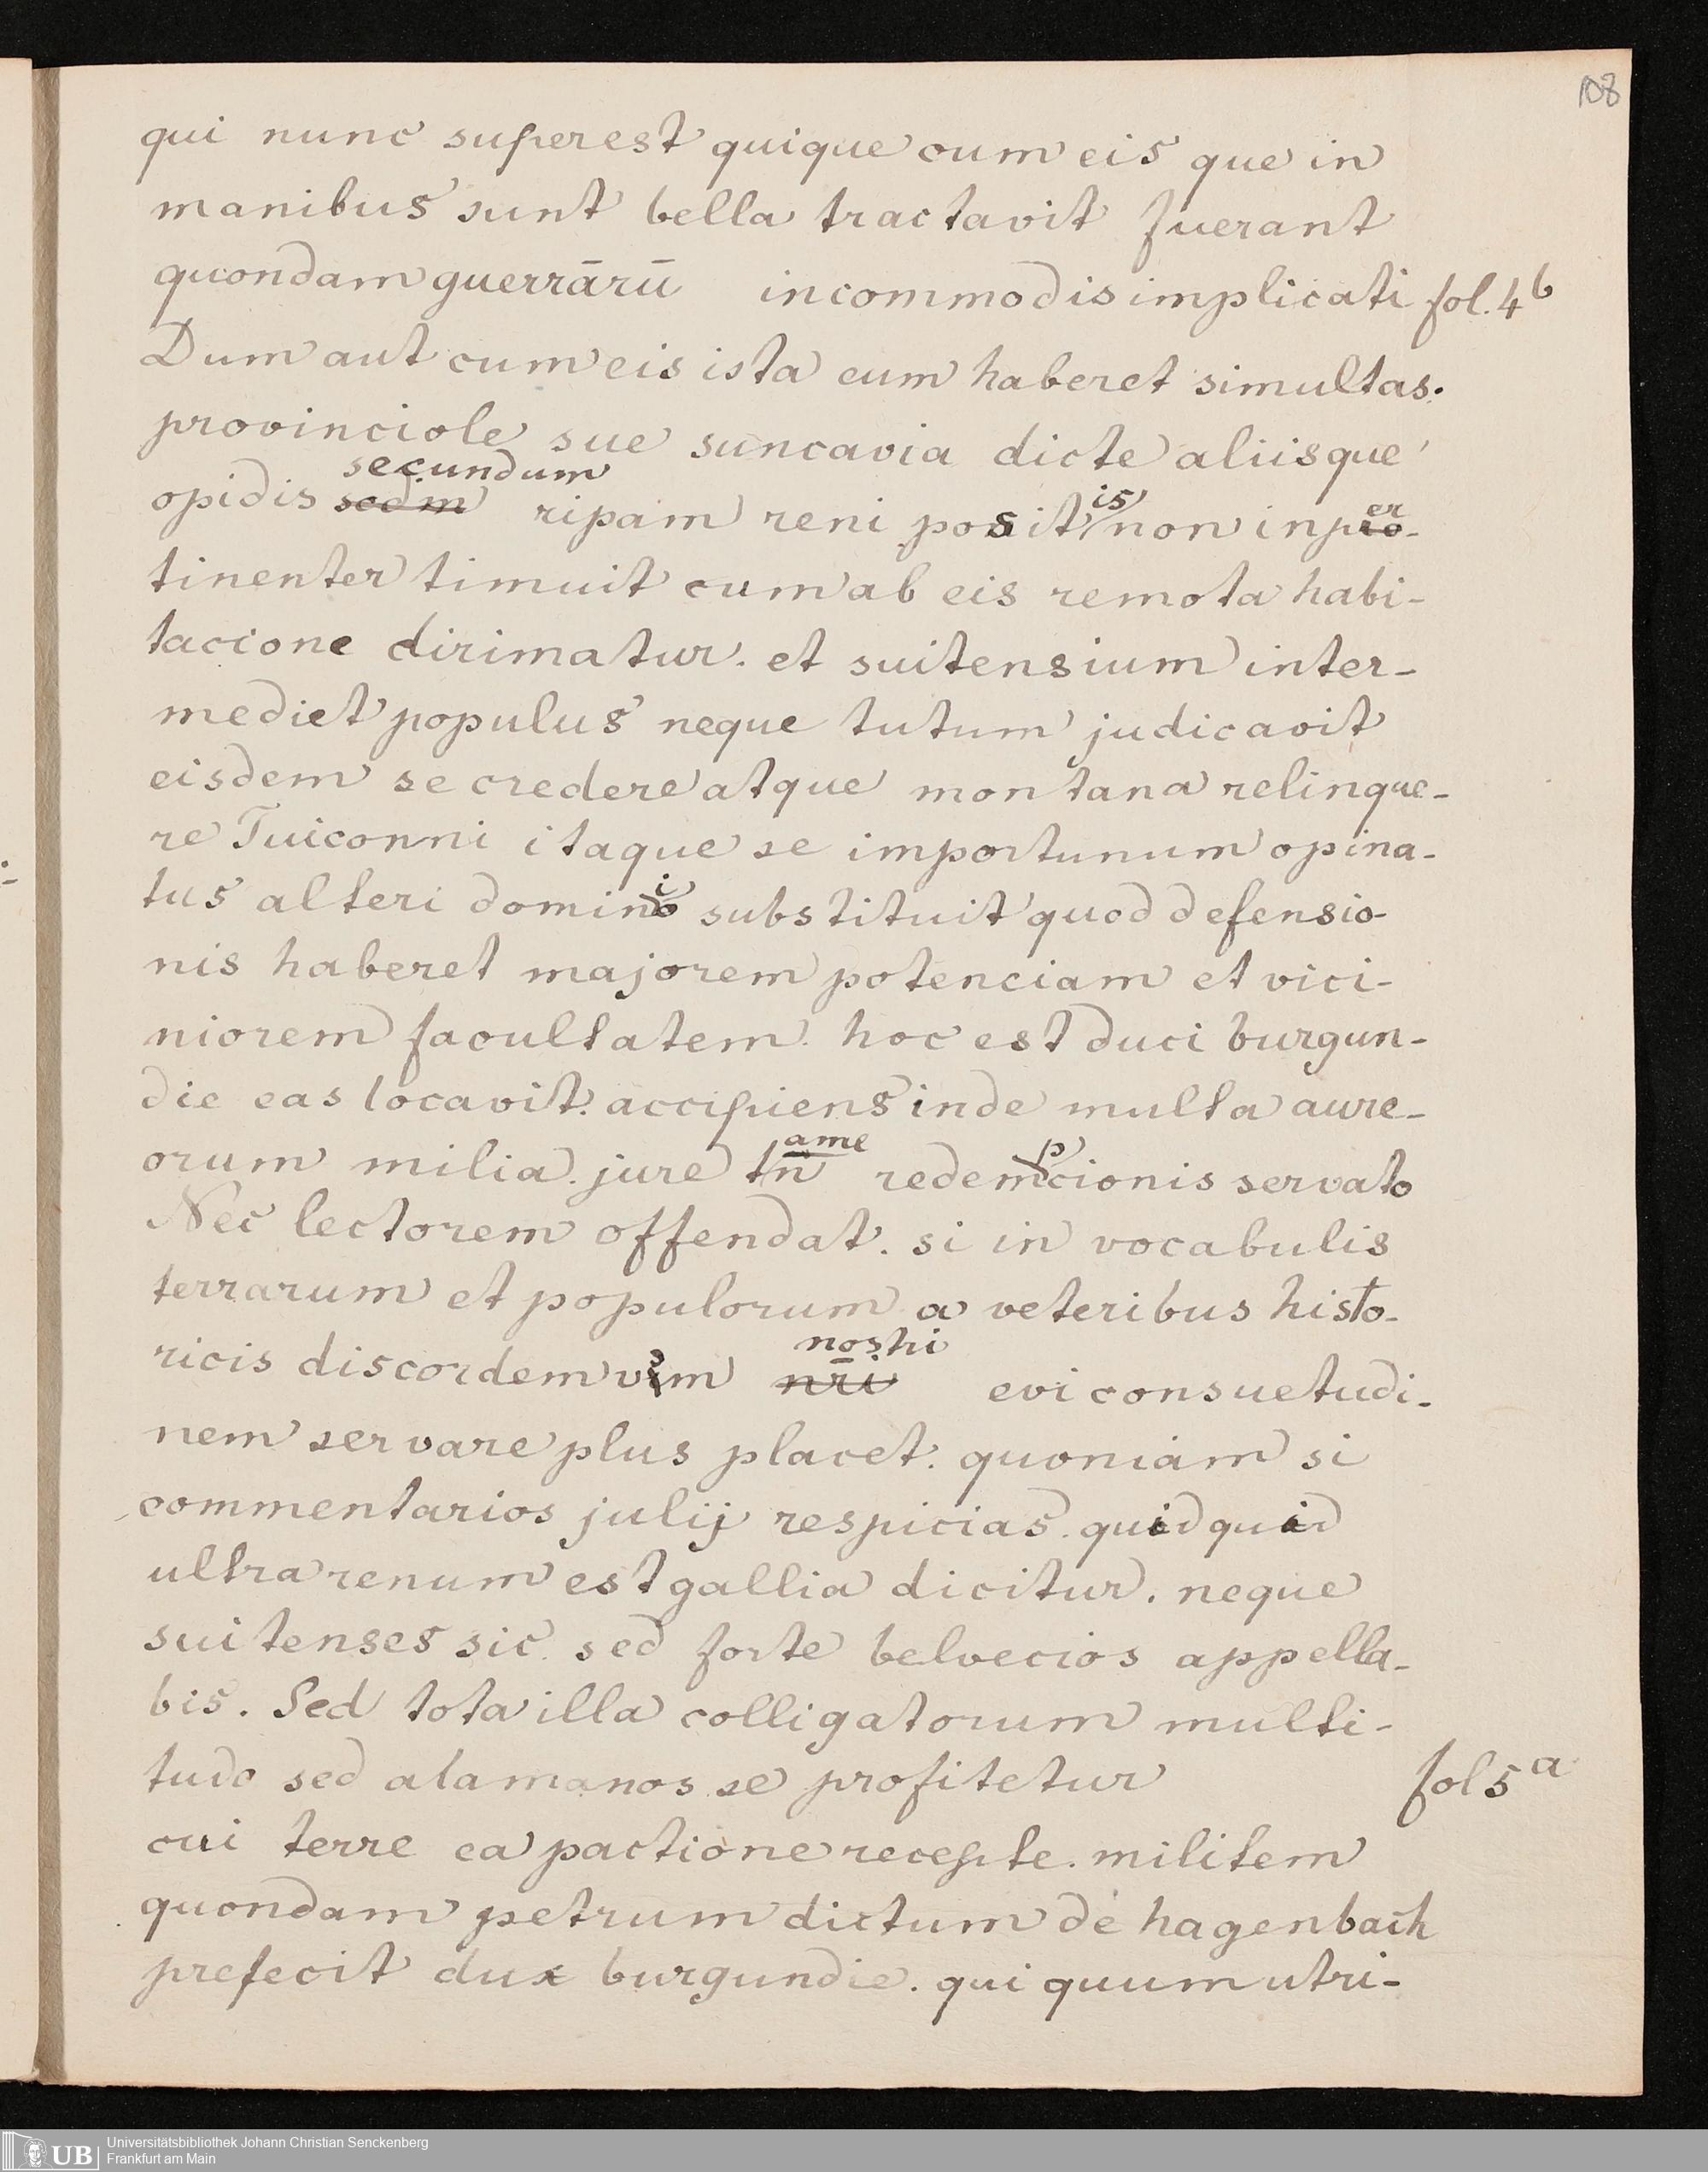 108
qui nunc superest quique cum eis que in
manibus sunt bella tractavit fuerant
quondam guerrārū incommodis implicati fol. 4b
Dum aut cum eis ista eum haberet simultas.
provinciole sue suncavia dicte aliisque
secundum
opidis scdm ripam reni positis non inper-
tinenter timuit cum ab eis remota habi-
tacione dirimatur. et suitensium inter-
mediet populus neque tutum judicavit
eisdem se credere atque montana relinque-
re Tuiconni itaque se importunum opina-
tus alteri domini substituit quod defensio-
nis haberet majorem potenciam et vici-
niorem facultatem. hoc est duci burgun-
die eas locavit. accipiens inde multa aure-
orum milia. jure tamen redempcionis servato
Nec lectorem offendat. si in vocabulis
terrarum et populorum a veteribus histo-
nostri
ricis discordem nrī evi consuetudi-
nem servare plus placet. quoniam si
commentarios julij respicias. quidquid
ultra renum est gallia dicitur. neque
suitenses sic. sed forte belvecios appella-
bis. Sed tota illa colligatorum multi-
tudo sed alamanos se profitetur fol 5a
cui terre ea pactione recepte. militem
quondam petrum dictum de hagenbach
prefecit dux burgundie. qui quum utri-
UB
Universitätsbibliothek Johann Christian Senckenberg
Frankfurt am Main